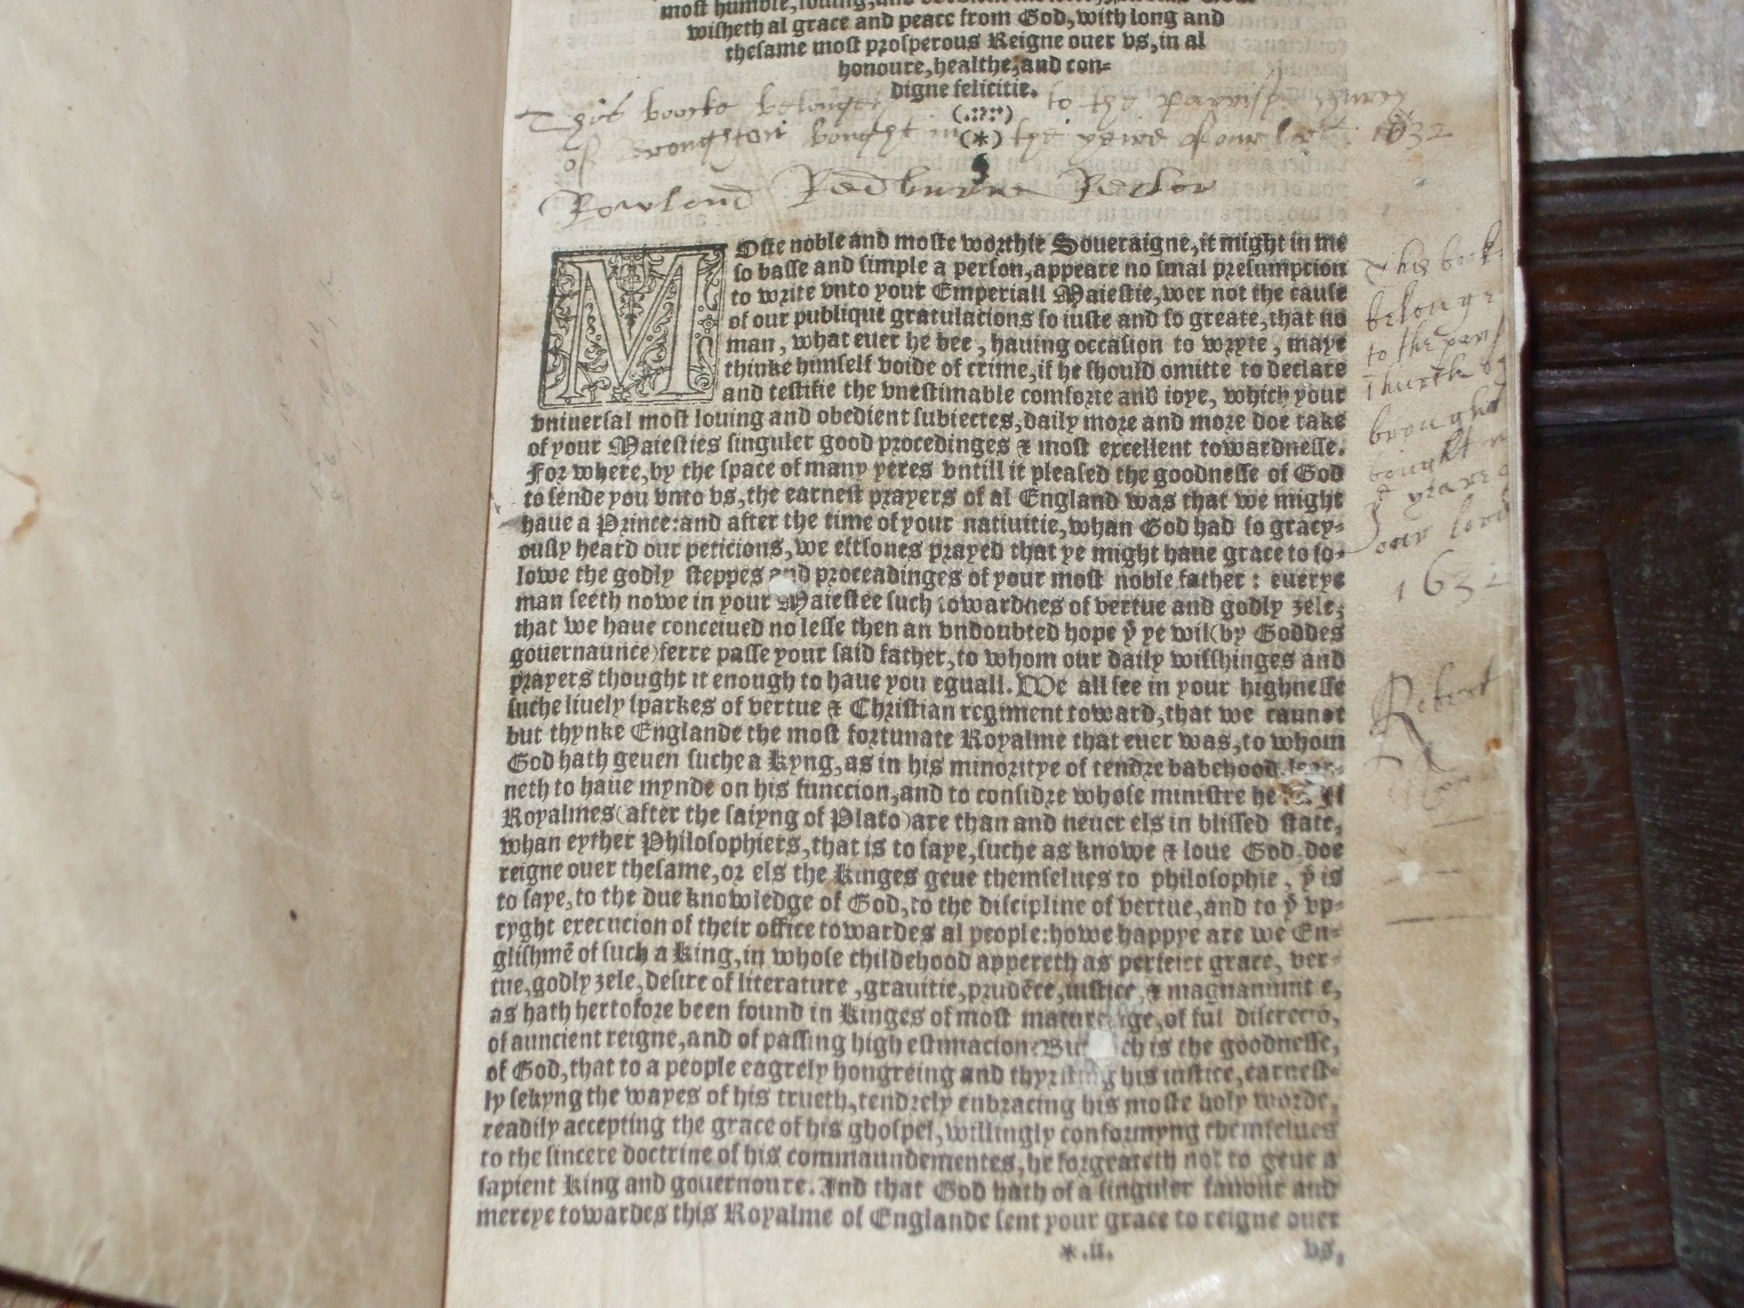 most humble, louing, and obedient
wisheth al grace and peace from God, with long and
thesame most prosperous Reigne ouer vs, in al
honoure, healthe, and con-
digne felicitie.
(.:?:*)
(*)
This boocke belonges to the parrish
of broughton bought in the yeare of our lord 1632
Rowland Redburne Rector
MOste noble and moste worthie Soueraigne, it might in me
so basse and simple a person, appeare no smal presumpcion
to write vnto your Emperiall Maiestie, wer not the cause
of our publique gratulacions so iuste and so greate, that no
man, what euer he bee, hauing occasion to wryte, maye
thinke himself voide of crime, if he should omitte to declare
and testifie the vnestimable comforte and ioye, which your
vniuersal most louing and obedient subiectes, daily more and more doe take
of your Maiesties singuler good procedinges & most excellent towardnesse.
For where, by the space of many yeres vntill it pleased the goodnesse of God
to sende you vnto vs, the earnest prayers of al England was that we might
haue a Prince: and after the time of your natiuitie, whan God had so gracy-
ously heard our peticions, we eftsones prayed that ye might haue grace to fo-
lowe the godly steppes and proceadinges of your most noble father: euerye
man seeth nowe in your Maiestee such towardnes of vertue and godly zele,
that we haue conceiued no lesse then an vndoubted hope yͭ ye wil (by Goddes
gouernaunce) ferre passe your said father, to whom our daily wisshinges and
prayers thought it enough to haue you eguall. We all see in your highnesse
suche liuely sparkes of vertue & Christian regiment toward, that we cannot
but thynke Englande the most fortunate Royalme that euer was, to whom
God hath geuen suche a kyng, as in his minoritye of tendre babehood, lear-
neth to haue mynde on his funccion, and to considre whose ministre he
Royalmes (after the saiyng of Plato) are than and neuer els in blissed state,
whan eyther Philosophiers, that is to saye, suche as knowe & loue God, doe
reigne ouer thesame, or els the kinges geue themselues to philosophie, yͭ is
to saye, to the due knowledge of God, to the discipline of vertue, and to yͤ vp-
ryght execucion of their office towardes al people: howe happye are we En-
glishmē of such a king, in whose childehood appereth as perfeict grace, ver-
tue, godly zele, desire of literature, grauitie, prudēce, iustice, & magnanimitie,
as hath hertofore been found in kinges of most mature age, of ful discrecio,
of auncient reigne, and of passing high estimacion. But such is the goodnesse,
of God, that to a people eagrely hongreing and thyrsting his iustice, earnest-
ly sekyng the wayes of his trueth, tendrely enbracing his moste holy worde,
readily accepting the grace of his ghospel, willingly conformyng themselues
to the sincere doctrine of his commaundementes, he forgeateth not to geue a
sapient king and gouernoure. And that God hath of a singuler fauour and
mercye towardes this Royalme of Englande sent your grace to reigne ouer
*.ii. vs,
This book
belonge
to the par
Church of
brought
bought
yeare
our lord
1632
Robert